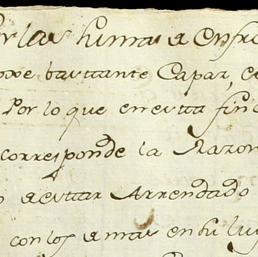 por las hima a enfre
bastante Capaz, e
Por lo que en esta finc
corresponde la Razon
o aestar Arrendado
con los amas en su lug